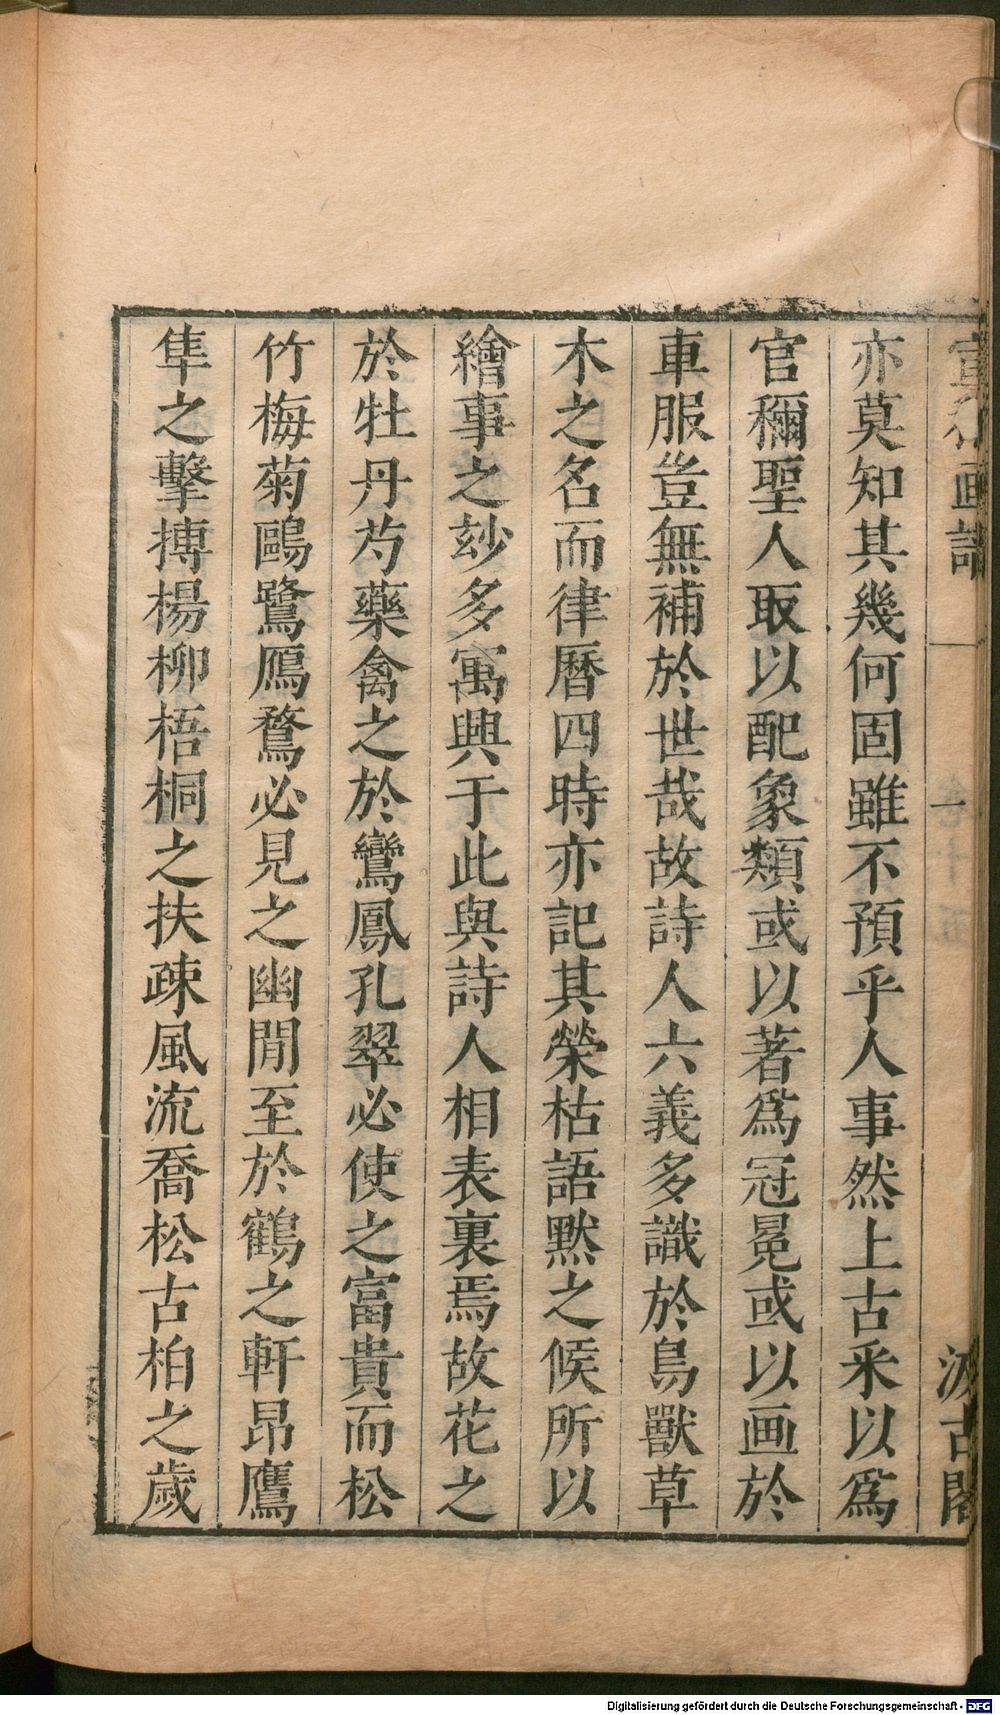 亦莫知其幾何固雖不預乎人事然上古采以爲
官稱聖人取以配象類或以著爲冠冕或以画於
車服豈無補於世哉故詩人六義多識於鳥獸草
木之名而律曆四時亦記其榮枯語默之候所以
繪事之玅多寓興于此與詩人相表裏焉故花之
於牡丹芍藥禽之於鸞鳳孔翠必使之富貴而松
竹梅菊鷗鷺鴈鶩必見之幽閒至於鶴之軒昂鷹
隼之擊搏楊柳梧桐之扶疎風流喬松古柏之歲
Digitalisierung gefördert durch die Deutsche Forschungsgemeinschaft - DFG